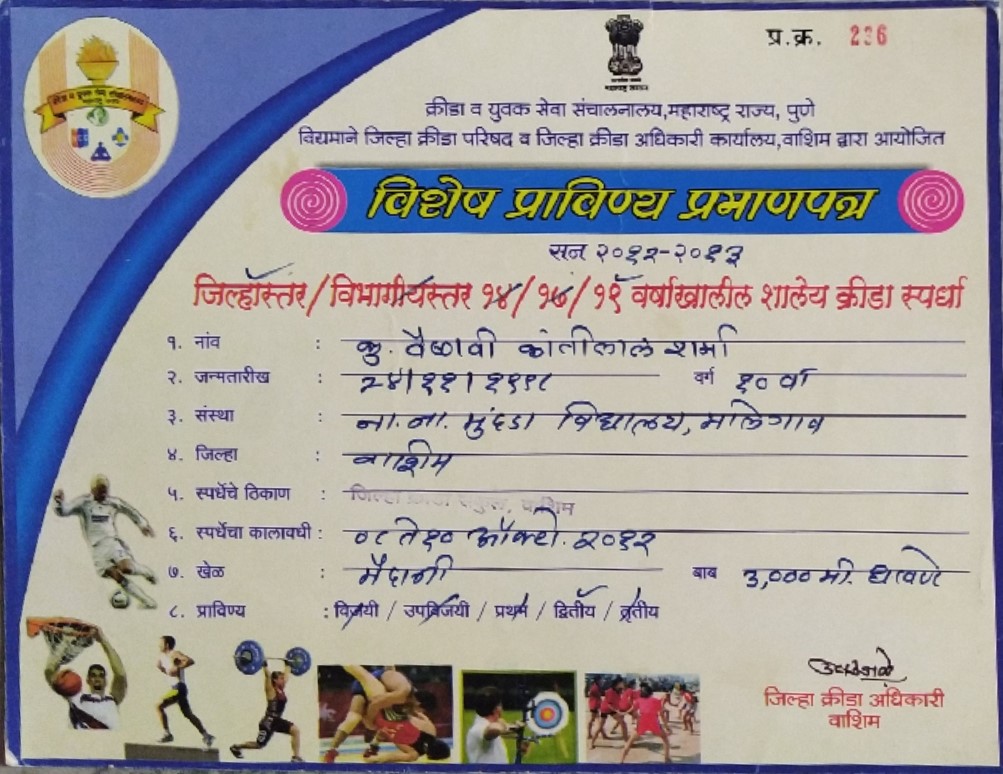 प्र.क्र. 236
क्रीडा व युवक सेवा संचालनालय,महाराष्ट्र राज्य, पुणे
विद्यमाने जिल्हा क्रीडा परिषद व जिल्हा क्रीडा अधिकारी कार्यालय,वाशिम द्वारा आयोजित
विशेष प्राविण्य प्रमाणपत्र
सन २०१२-२०१३
जिल्हास्तर/विभागीयस्तर १४/१७/१९ वर्षाखालील शालेय क्रीडा स्पर्धा
१. नांव : कु. वैष्णवी कांतीलाल शर्मा
२. जन्मतारीख : २४।११।१९९८ वर्ग १० वा
३. संस्था : ना.ना. मुंदडा विद्यालय, मालेगाव
४. जिल्हा : वाशिम
५. स्पर्धेचे ठिकाण : जिल्हा क्रीडा संकुल, वाशिम
६. स्पर्धेचा कालावधी : ०८ ते १० ऑक्टो. २०१२
७. खेळ : मैदानी बाब ३,००० मी. धावणे
८. प्राविण्य : विजयी / उपविजयी / प्रथम / द्वितीय / तृतीय
जिल्हा क्रीडा अधिकारी
वाशिम